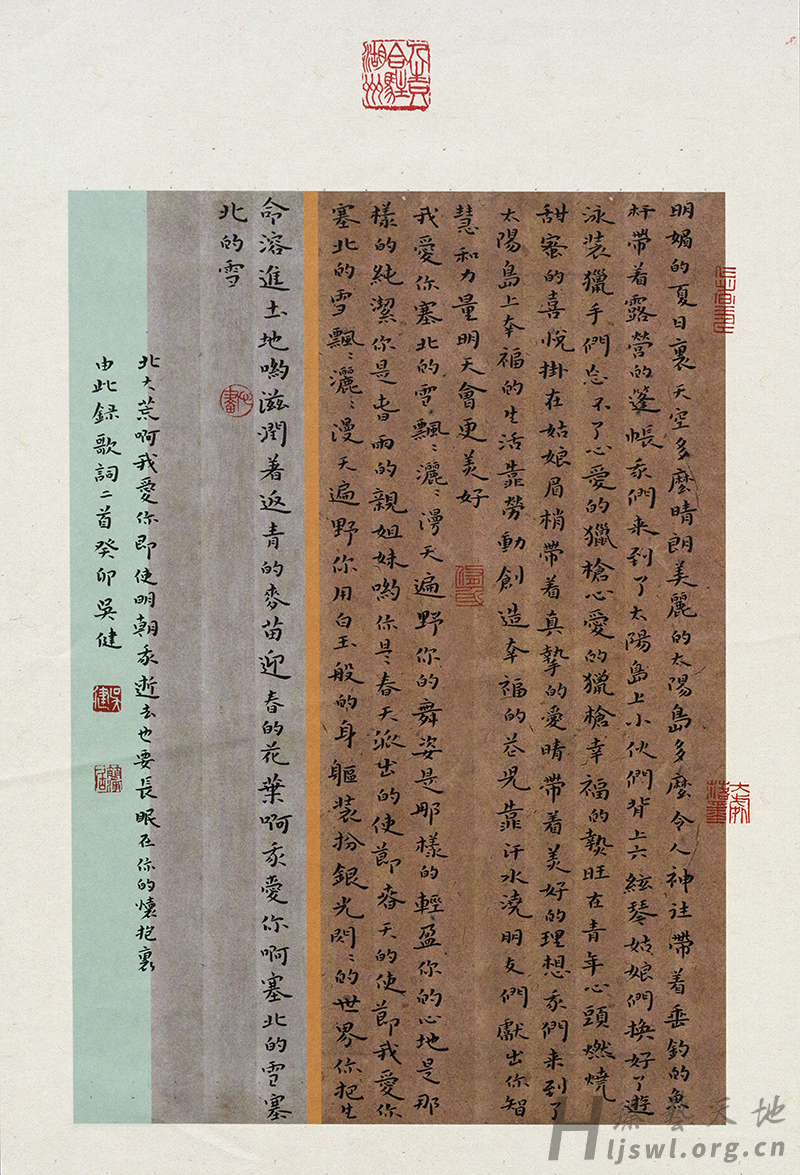 明媚的夏日裏天空多麼晴朗美麗的太陽島多麼令人神往帶着垂釣的魚
杆帶着露營的篷帳我們来到了太陽島上小伙們背上六絃琴姑娘們換好了遊
泳装獵手們忘不了心愛的獵槍心愛的獵槍幸福的熱旺在青年心頭燃燒
甜蜜的喜悅掛在姑娘眉梢帶着真摯的愛晴帶着美好的理想我們来到了
太陽島上幸福的生活靠勞動創造幸福的花児靠汗水澆朋友們獻出你智
慧和力量明天會更美好
我愛你塞北的雪飄〻灑〻漫天遍野你的舞姿是那樣的輕盈你的心地是那
樣的純潔你是春雨的親姐妹喲你是春天派出的使節春天的使節我愛你
塞北的雪飄〻灑〻漫天遍野你用白玉般的身軀裝扮銀光閃〻的世界你把生
命溶進土地喲滋潤著返青的麥苗迎春的花葉啊我愛你啊塞北的雪塞
北的雪
北大荒啊我愛你即使明朝我逝去也要長眠在你的懷抱裏
由此録歌詞二首癸卯吳健
吳健
天地
Hljswl.org.cn